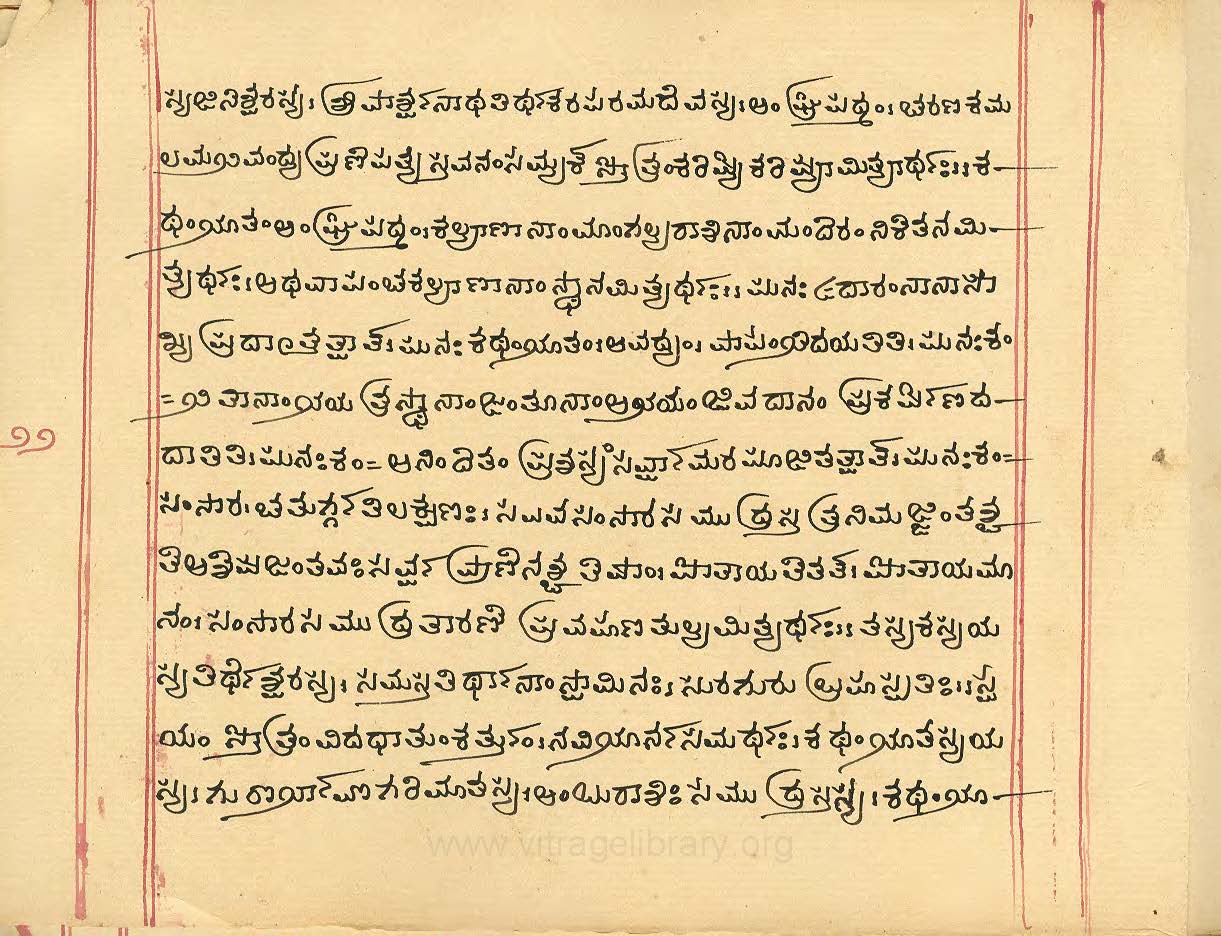 ಸ್ಯಜಿನಿಶ್ವರಸ್ಯ। ಶ್ರೀ ಪಾರ್ಶ್ವನಾಥತಿರ್ಥಕರಪರಮದೇವಸ್ಯ। ಅಂಘ್ರಿಪದ್ಮಂ। ಚರಣಕಮ
ಲಮಭಿವಂದ್ಯ ಪ್ರಣಿಪತ್ಯ ಸ್ತವನಂಸಮ್ಯಕ್ ಸ್ತೋತ್ರಂಕರಿಷ್ಯಿ ಕರಿಷ್ಯಾಮಿತ್ಯಾರ್ಥಃ।। ಕ-
ಥಂಭೂತಂಅಂಘ್ರಿಪದ್ಮಂ। ಕಲ್ಯಾಣಾನಾಂಮಾಂಗಲ್ಯರಾಶಿನಾಂಮಂದಿರಂನಿಕೆತನಮಿ-
ತ್ಯರ್ಥಃ। ಅಥವಾಪಂಚಕಲ್ಯಾಣಾನಾಂ ಸ್ಥಾನಮಿತ್ಯರ್ಥಃ।। ಪುನಃ ಉದಾರಂನಾನಾಸೌ
ಖ್ಯ ಪ್ರದಾತೃತ್ವಾತ್। ಪುನಃ ಕಥಂಭೂತಂ। ಅವದ್ಯಂ। ಪಾಪಂಭಿದಯತಿತಿ। ಪುನಃಕಂ
= ಭಿತಾನಾಂಭಯ ತ್ರಸ್ಥಾನಾಂಜಂತೂನಾಂಅಭಯಂಜಿವದಾನಂ ಪ್ರಕರ್ಷಿಣದ-
ದಾತಿತಿ। ಪುನಃಕಂ= ಅನಿಂದಿತಂ ಪ್ರಶಸ್ಯಂಸರ್ವ್ವಾಮರಪೂಜಿತತ್ವಾತ್। ಪುನಃಕಂ=
ಸಂಸಾರ। ಚತುರ್ಗ್ಗತಿಲಕ್ಷಣಃ। ಸಏವಸಂಸಾರಸಮುದ್ರಸ್ತತ್ರನಿಮಜ್ಜಂತಶ್ಚ
ತಿಅಶಿಷಜಂತವಃಸರ್ವ್ವ ಪ್ರಾಣಿನಶ್ಚ ತಿಷಾಂ। ಪೊತಾಯತಿತತ್। ಪೊತಾಯಮಾ
ನಂ। ಸಂಸಾರಸಮುದ್ರತಾರಣಿ ಪ್ರವಹಣತುಲ್ಯಮಿತ್ಯರ್ಥಃ।। ತಸ್ಯಕಸ್ಯಯ
ಸ್ಯತಿರ್ಥೆಶ್ವರಸ್ಯ। ಸಮಸ್ತತಿರ್ಥಾನಾಂಸ್ವಾಮಿನಃ। ಸುರಗುರುಬ್ರಹಸ್ಪತಿಃ।। ಸ್ವ
ಯಂ ಸ್ತೋತ್ರಂವಿದಧಾತುಂಕರ್ತ್ತುಂ। ನವಿಭೂರ್ನಸಮರ್ಥಃ। ಕಥಂಭೂತಸ್ಯಯ
ಸ್ಯ। ಗುರೊರ್ಭಾವೊಗರಿಮಾತಸ್ಯ। ಅಂಬುರಾಶಿಃ ಸಮುದ್ರಸ್ತಸ್ಯ। ಕಥಂಭೂ-
೨೨
www.vitragelibrary.org